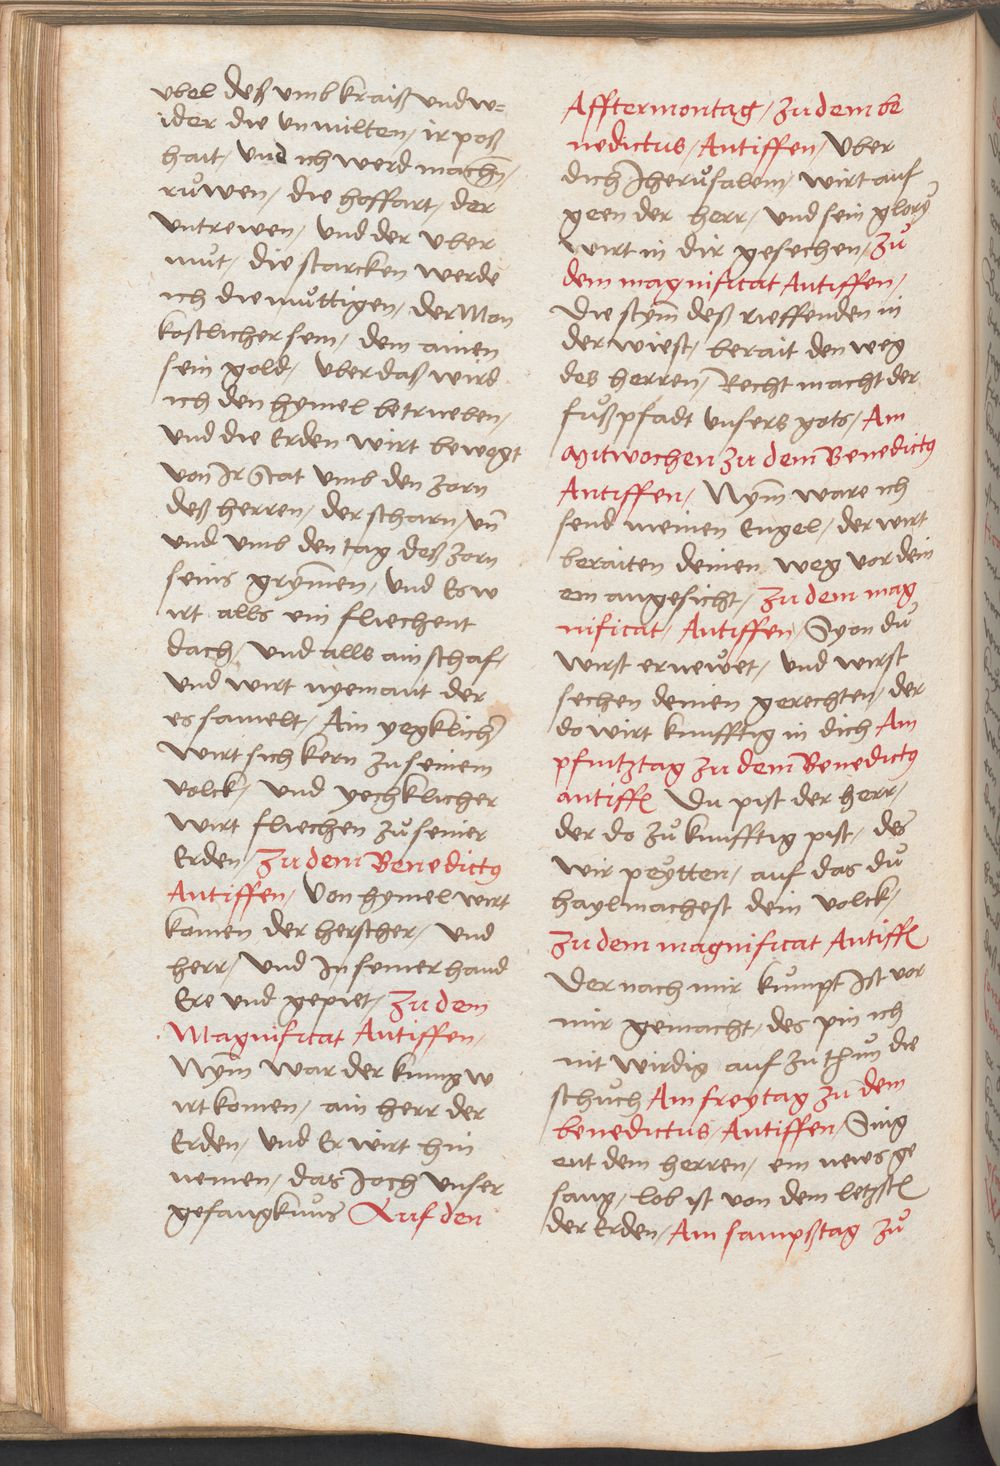 vbel deß vmbkraiß vnd w=
ider die vnmilten, ir poß
hait, vnd ich werd machn̄,
ruͦwen, die hoffart, der
vntrewen, vnd der vber
muͦt, die starcken werde
ich die muͦttigen, der Man
kostlicher sein, dem ainen
sein gold, vber daß wird
ich den hymel betrueben,
vnd die Erden wirt bewegt
von Ir Stat vmb den zorn
deß herren, der scharn, vn̄
vnd vmb den tag deß zorn
seins grym̄en, vnd Es w
irt alls ein fliechent
dach, vnd alls ain schaf,
vnd wirt nyemant der
es samelt, Ain yegklich̄
wirt sich kern zu seinem
volck, vnd yechklicher
wirt fliechen zuͦ seiner
Erden, Zu dem Benedictꝰ
Antiffen, Von hymel wirt
komen der herscher, vnd
herr, vnd In seiner hand
Ere vnd gepiet, Zu dem
Magnificat Antiffen,
Nym̄ war der kunig w
irt komen, ain herr der
Erden, vnd Er wirt hin
nemen, das Joch vnser
gefangknuͦs Auf den
Afftermontag, Zu dem be
nedictus, Antiffen, Vber
dich Iheruͦsalem, wirt auf
geen der herr, vnd sein glory̑
wirt in dir gesechen, Zuͦ
dem magnificat Antiffen,
Die stym̄ deß rieffenden in
der wiest, berait den weg
des herren, Recht macht der
fuͦßpfadt vnsers gots, Am
mitwochen zu dem Benedictꝰ
Antiffen, Nym̄ ware ich
send meinen Engel, der wirt
beraiten deinen weg vor dein
em angesicht, Zu dem mag
nificat, Antiffen, Syon duͦ
wirst ernewͦet, vnd wirst
sechen deinen gerechten, der
do wirt kunfftig in dich Am
pfintztag zu dem Benedictꝰ
antiffn̄ Du pist der herr,
der do zuͦ kunfftig pist, des
wir peytten, auf das duͦ
haylmachest dein volck,
Zu dem magnificat Antiffn̄
Der nach mir kuͦmpt Ist vor
mir gemacht, des pin ich
nit wirdig auf zu thuͦn die
schuͦch Am freytag zu dem
benedictus, Antiffen, Sing
ent dem herren, ein news ge
sang, lob ist von dem letzstn̄
der Erden, Am sampßtag zuͦ